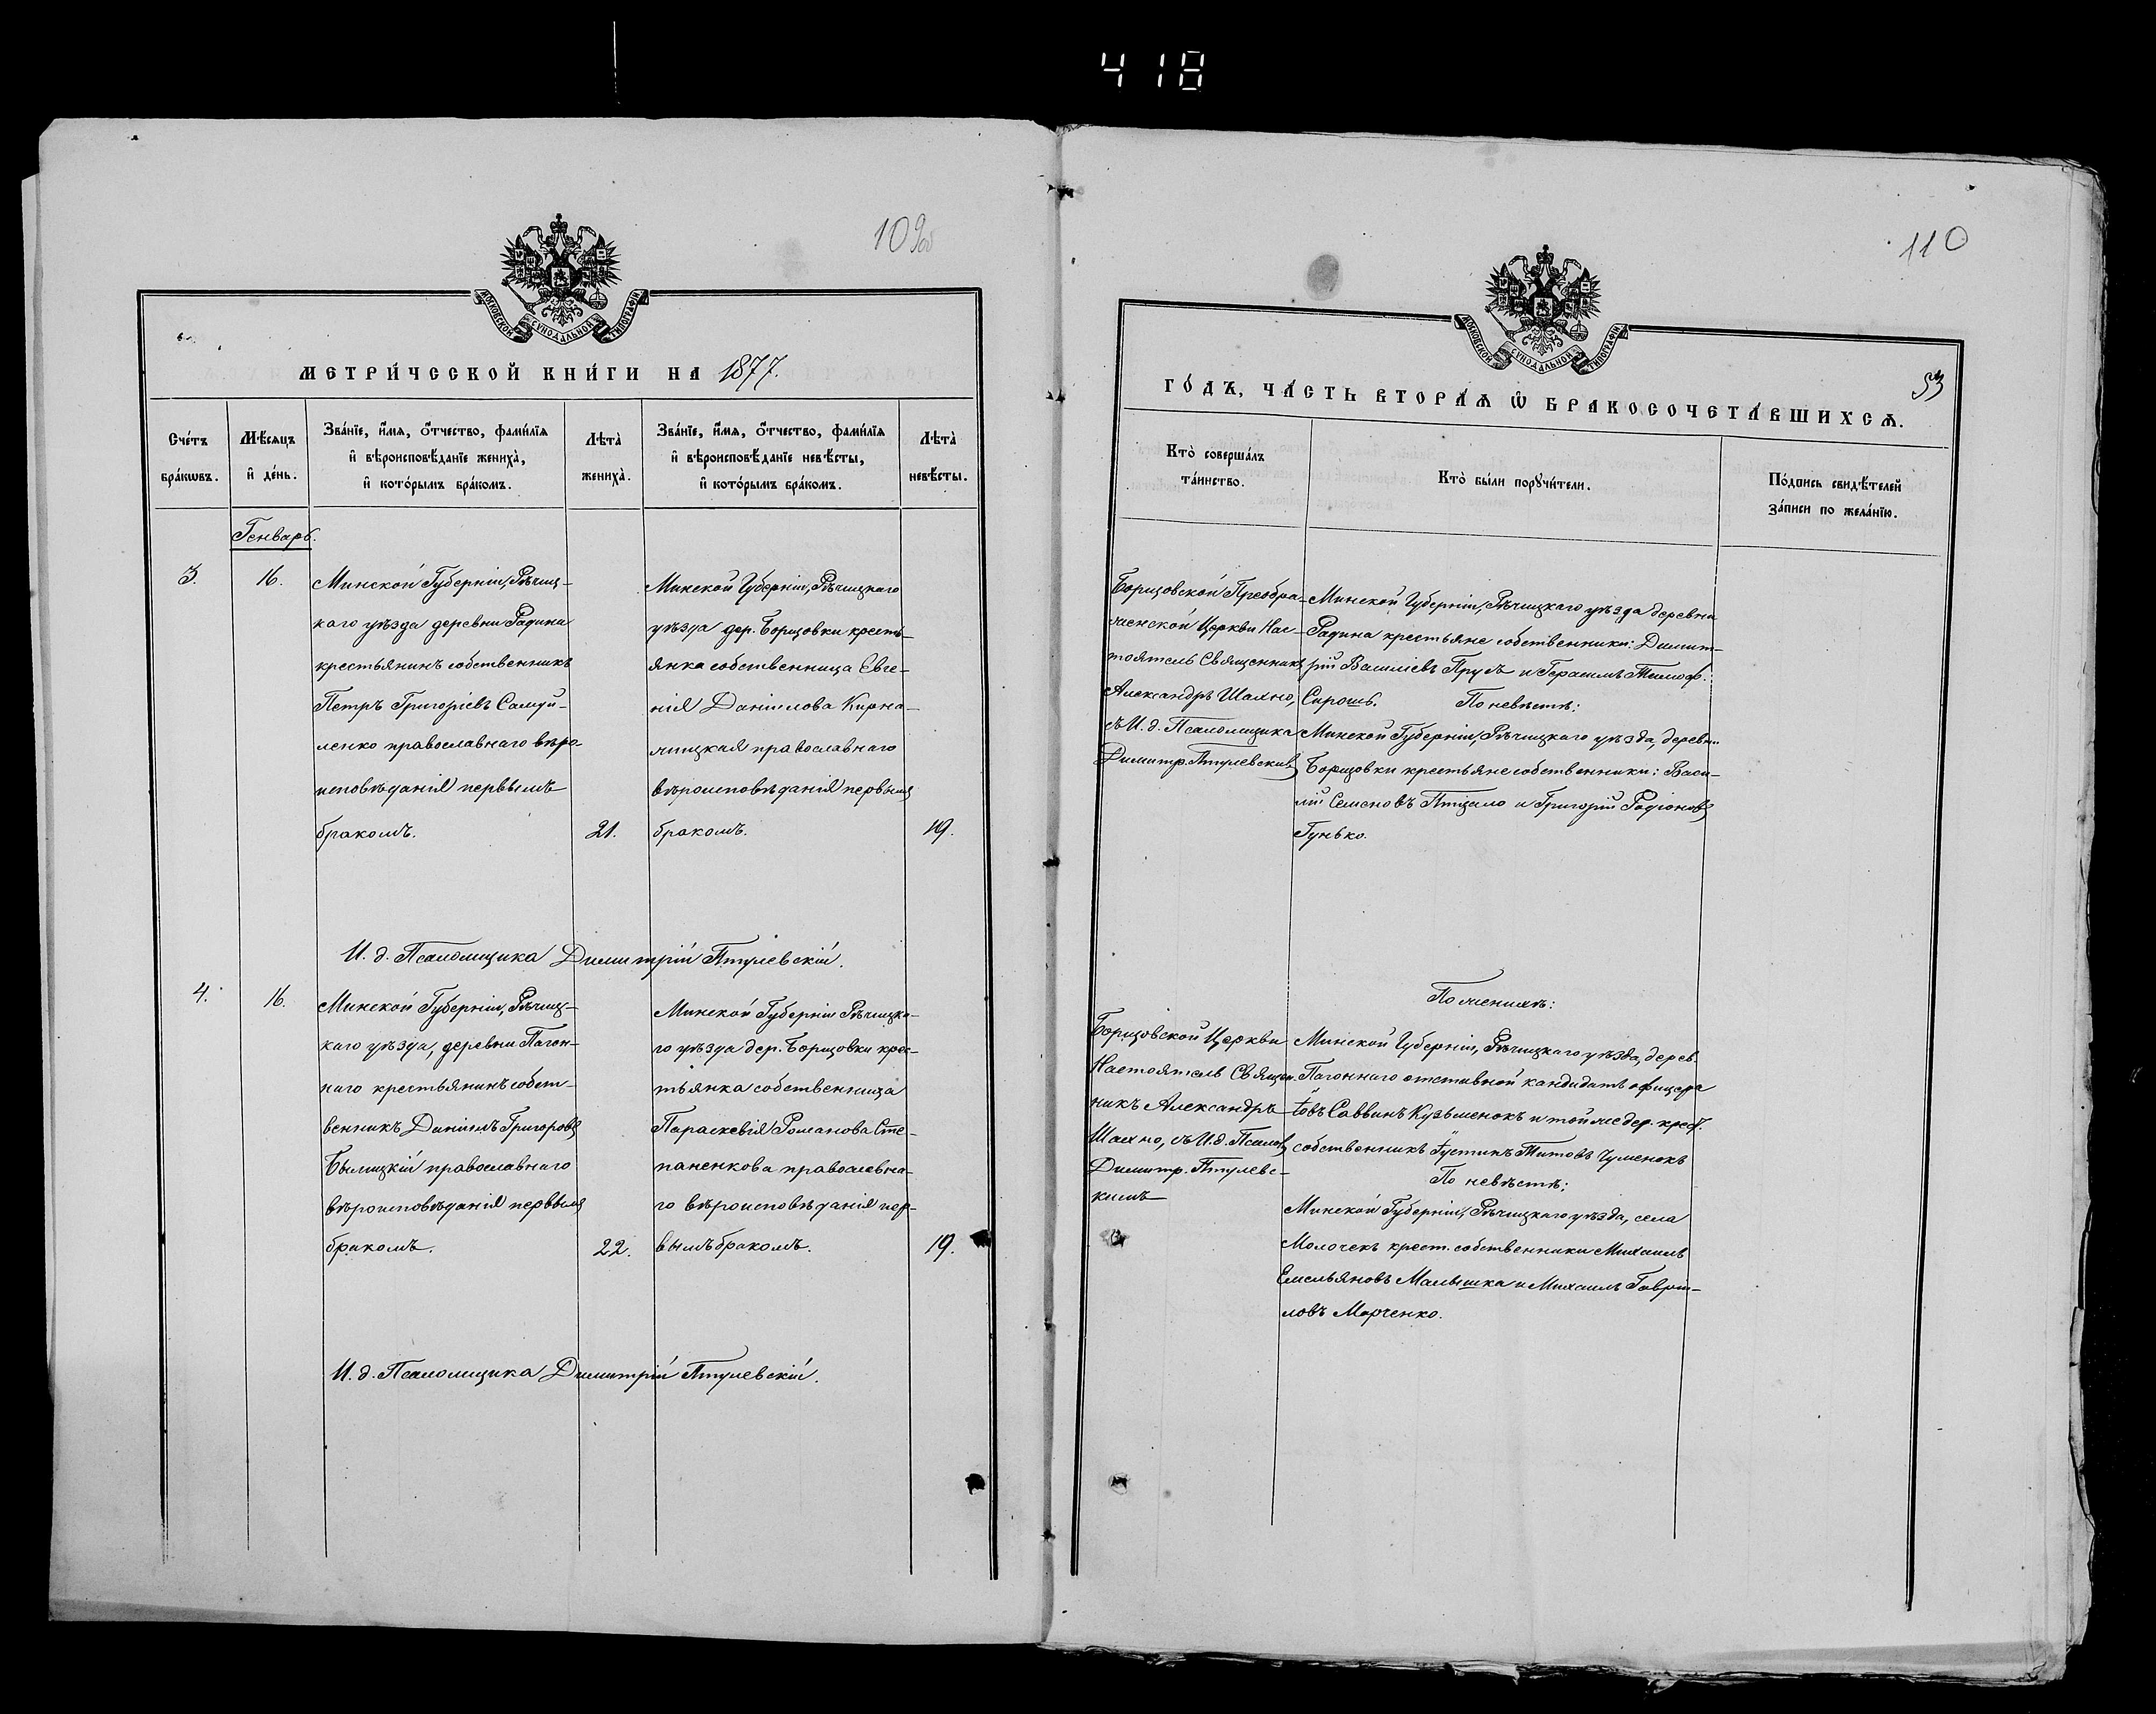 418
109об
МОСКОВСКОЙ СѴНОДАЛЬНОЙ ТИПОГРАФІИ
МЕТРИ́ЧЕСКОЙ КНИ́ГИ НА 1877.
Сче́тъ бра́кѡвъ.
Мѣ́сяцъ и҆ де́нь.
Зва́нїе, и҆́мѧ, ѻ҆́тчество, фами́лїѧ
и҆ вѣроисповѣ́данїе жениха̀,
и҆ кото́рымъ бра́комъ.
Лѣта̀ жениха̀.
Зва́нїе, и҆́мѧ, ѻ҆́тчество, фами́лїѧ
и҆ вѣроисповѣ́данїе невѣ́сты,
и҆ кото́рымъ бра́комъ.
Лѣта̀ невѣ́сты.
Генварь.
3.
16.
Минской Губерніи, Рѣчиц-
каго уѣзда деревни Радина
крестьянинъ собственникъ
Петръ Григоріевъ Самуй-
ленко православнаго вѣро-
исповѣданія первымъ
бракомъ.
21.
Минской Губерніи, Рѣчицкаго
уѣзда дер. Борщовки кресть-
янка собственница Евге-
нія Даніилова Кирна-
жицкая православнаго
вѣроисповѣданія первымъ
бракомъ.
19.
И. д. Псаломщика Димитрій Птулевскій.
4.
16.
Минской Губерніи, Рѣчиц-
каго уѣзда, деревни Пагон-
наго крестьянинъ собст-
венникъ Даніилъ Григоровъ
Былицкій православнаго
вѣроисповѣданія первымъ
бракомъ.
22.
Минской Губерніи Рѣчицка-
го уѣзда дер. Борщовки крес-
тьянка собственница
Параскевія Романова Сте-
паненкова православна-
го вѣроисповѣданія пер-
вымъ бракомъ.
19.
И. д. Псаломщика Димитрій Птулевскій.
110
МОСКОВСКОЙ СѴНОДАЛЬНОЙ ТИПОГРАФІИ
53
ГО́ДЪ, ЧА́СТЬ ВТОРА́Ѧ Ѡ҆ БРАКОСОЧЕТА́ВШИХСѦ.
Кто̀ соверша́лъ
та́инство.
Кто̀ бы́ли порꙋчи́тели.
По́дпись свидѣ́телей
за́писи по жела́нїю.
Борщовской Преобра-
женской Церкви Нас-
тоятель Священникъ
Александръ Шахно,
съ И. д. Псаломщика
Димитр. Птулевскимъ
Минской Губерніи, Рѣчицкаго уѣзда деревни
Радина крестьяне собственники: Димит-
рій Василіевъ Прусъ и Герасимъ Тимоф.
Сирошъ. По невѣстѣ:
Минской Губерніи, Рѣчицкаго уѣзда, деревни
Борщовки крестьяне собственники: Васи-
лій Семеновъ Птцало и Григорій Родіоновъ
Гунько.
По женихѣ:
Борщовской Церкви
Настоятель Священ-
никъ Александръ
Шахно, съ И. д. Псалом.
Димитр. Птулевс-
кимъ
Минской Губерніи, Рѣчицкаго уѣзда, дерев.
Пагоннаго отставной кандидатъ офицера
Іовъ Саввинъ Кузьменокъ и той же дер. крест.
собственникъ Іустинъ Титовъ Чуменокъ
По невѣстѣ:
Минской Губерніи, Рѣчицкаго уѣзда, села
Молочекъ крест. собственники Михаилъ
Емельяновъ Малышка и Михаилъ Гаврі-
ловъ Марченко.